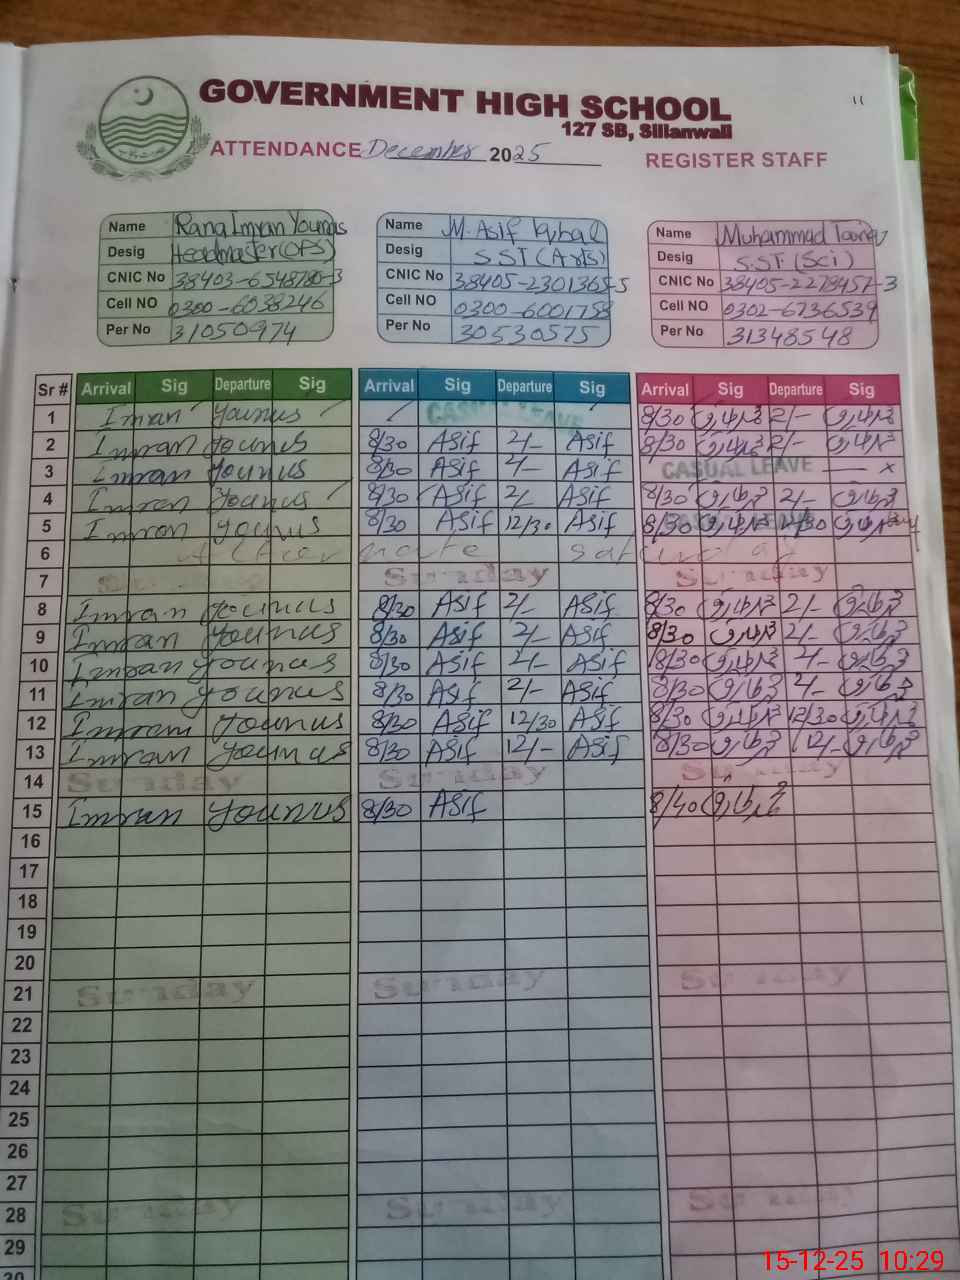 11
GOVERNMENT HIGH SCHOOL
127 SB, Sillanwali
ATTENDANCE December 2025 REGISTER STAFF
Name Rana Imran Younas Name M. Asif Iqbal Name Muhammad
Desig Headmaster(OPS) Desig SST (Arts) Desig S.S.T (Sci)
CNIC No 38403-6548780-3 CNIC No 38405-2301365-5 CNIC No 38405-2278457-3
Cell NO 0300-6038246 Cell NO 0300-6001758 Cell NO 0302-6736539
Per No 31050974 Per No 30530575 Per No 31348548
Sr # Arrival Sig Departure Sig Arrival Sig Departure Sig Arrival Sig Departure Sig
1 Imran Younus CASUAL LEAVE 8/30 2/-
2 Imran Younus 8/30 Asif 2/- Asif 8/30 2/-
3 Imran Younus 8/30 Asif 2/- Asif CASUAL LEAVE — x
4 Imran Younus 8/30 Asif 2/- Asif 8/30 2/-
5 Imran Younus 8/30 Asif 12/30 Asif 8/30 12/30
6 Alternate saturday
7 Sunday Sunday Sunday
8 Imran Younus 8/30 Asif 2/- Asif 8/30 2/-
9 Imran Younus 8/30 Asif 2/- Asif 8/30 2/-
10 Imran Younus 8/30 Asif 2/- Asif 8/30 2/-
11 Imran Younus 8/30 Asif 2/- Asif 8/30 2/-
12 Imran Younus 8/30 Asif 12/30 Asif 8/30 12/30
13 Imran Younus 8/30 Asif 12/- Asif 8/30 12/-
14 Sunday Sunday Sunday
15 Imran Younus 8/30 Asif 8/40
16
17
18
19
20
21 Sunday Sunday Sunday
22
23
24
25
26
27
28 Sunday Sunday Sunday
29
30
15-12-25 10:29